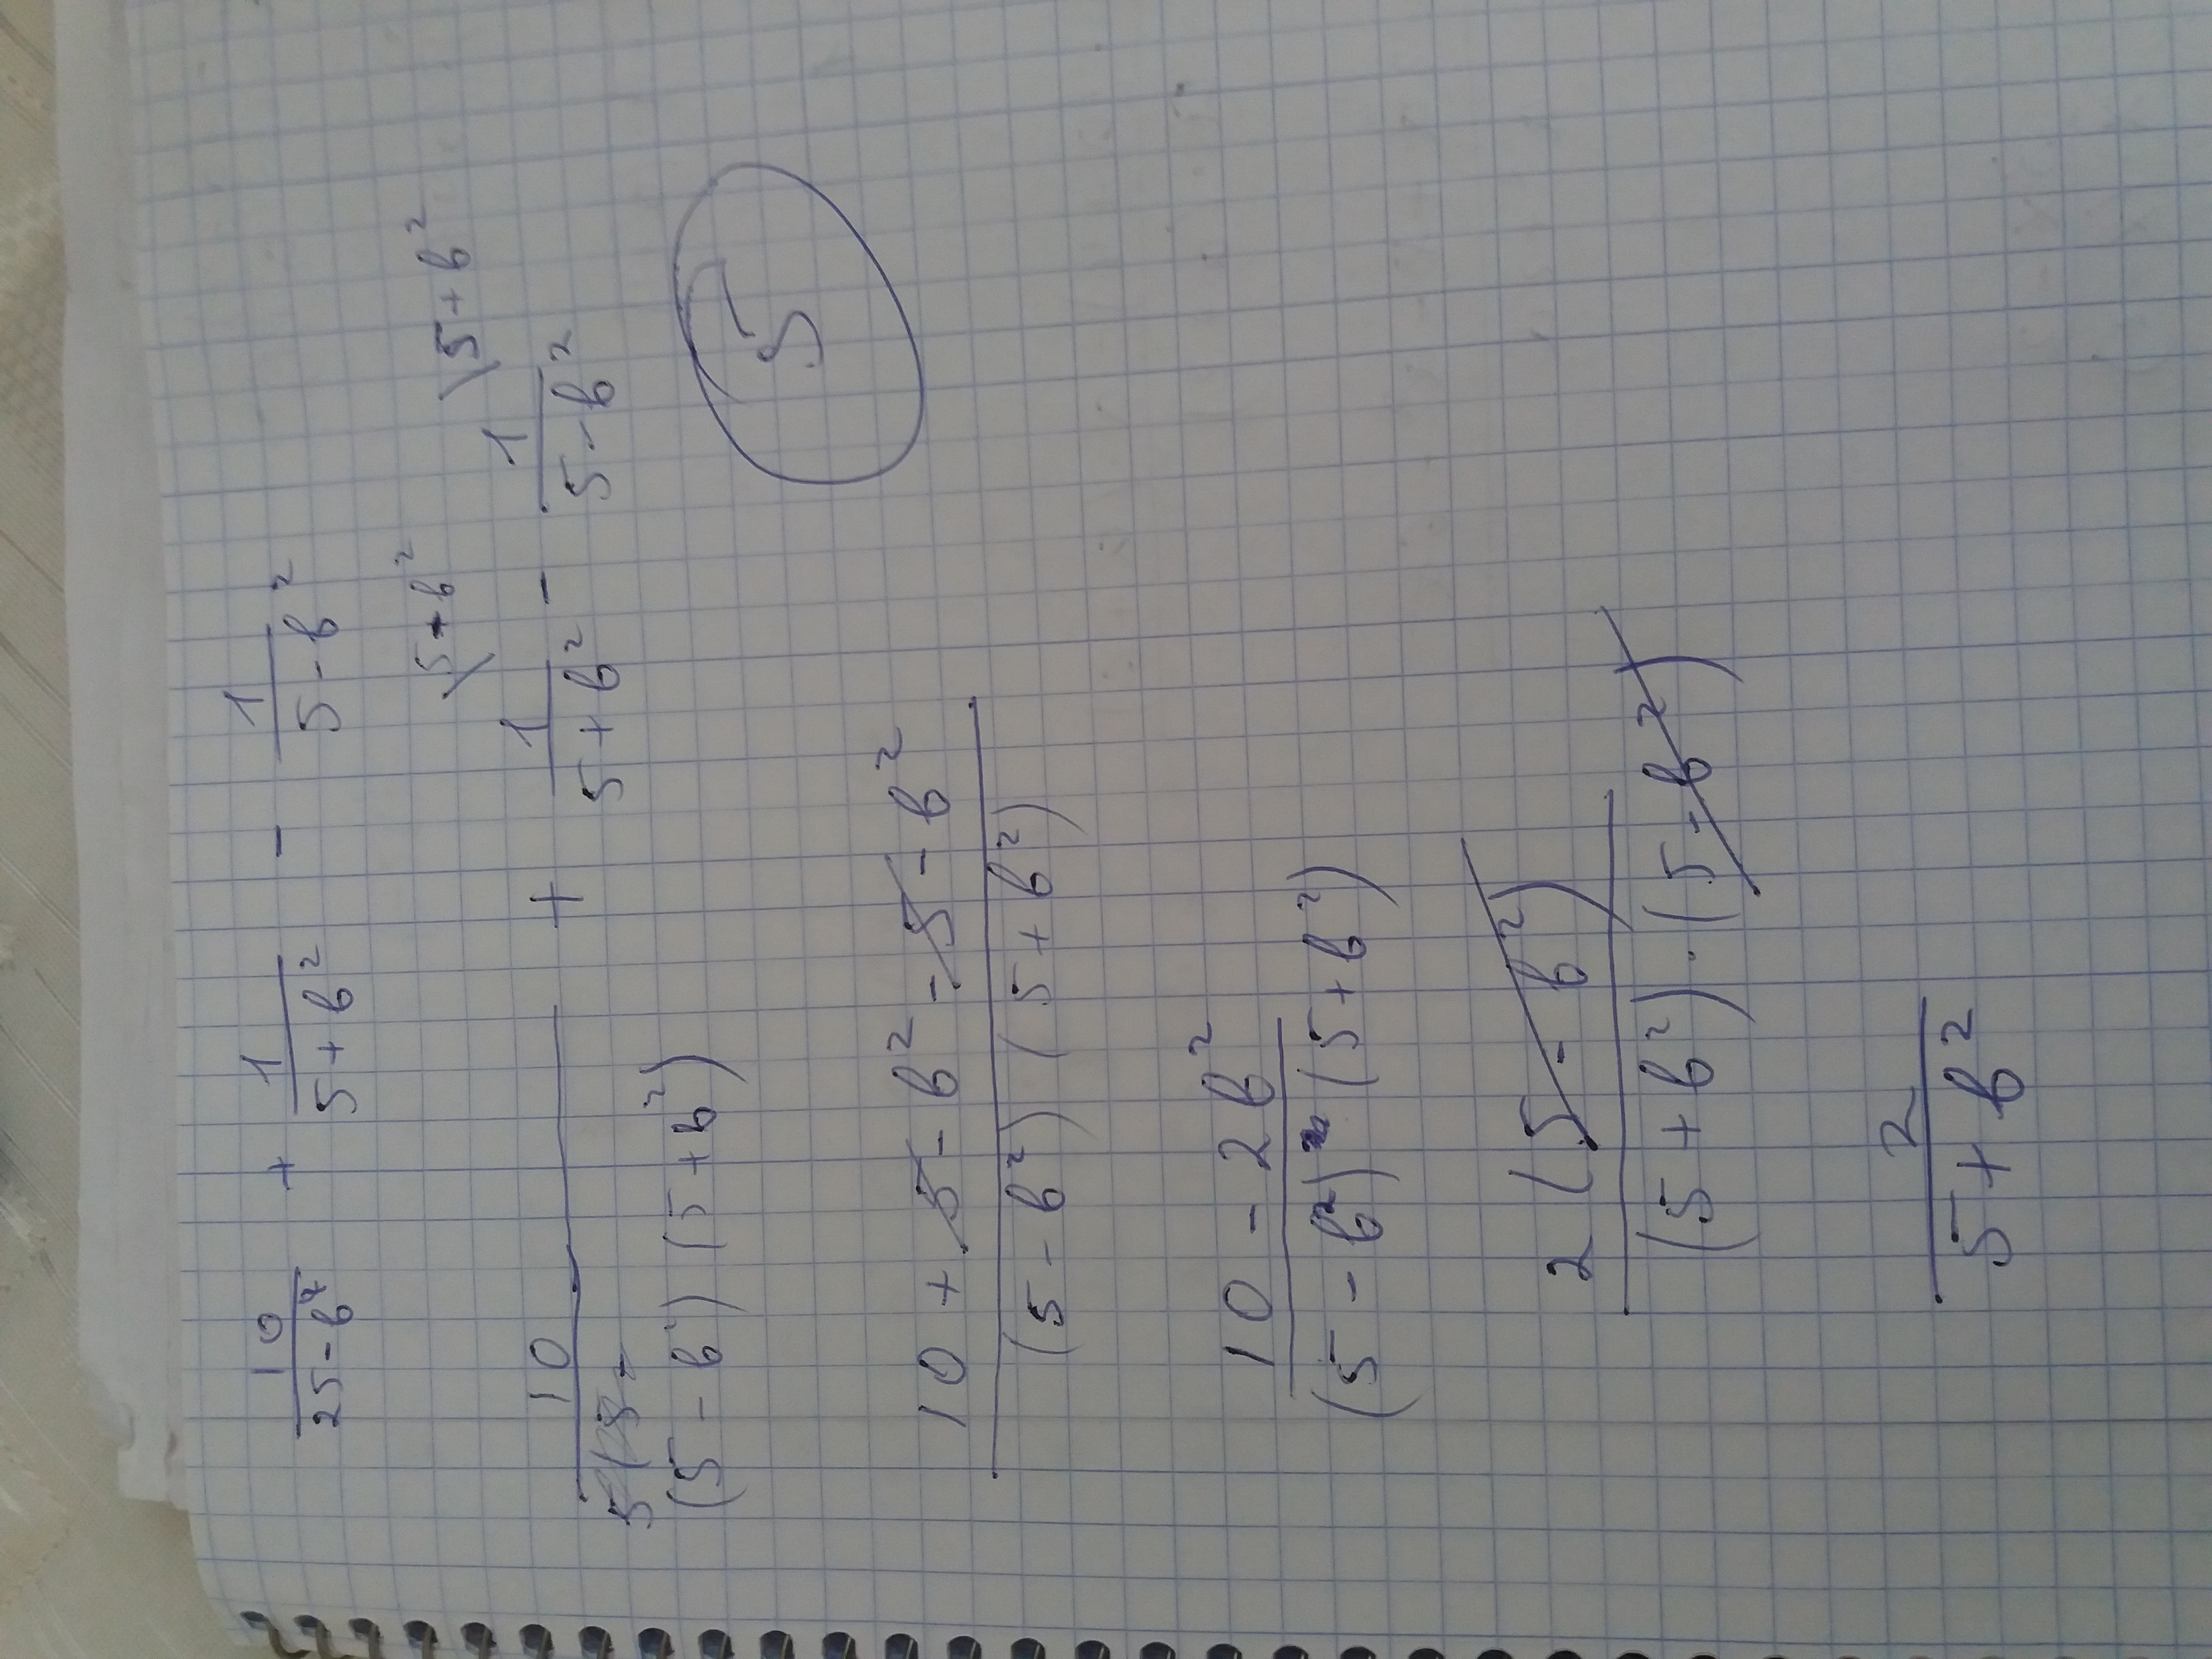 10/(25-b⁴) + 1/(5+b²) - 1/(5-b²)
\5-b² \5+b²
10/((5-b²)(5+b²)) + 1/(5+b²) - 1/(5-b²)
5
(10+5-b²-5-b²)/((5-b²)(5+b²))
(10-2b²)/((5-b²)(5+b²))
2(5-b²)/((5+b²)·(5-b²))
2/(5+b²)